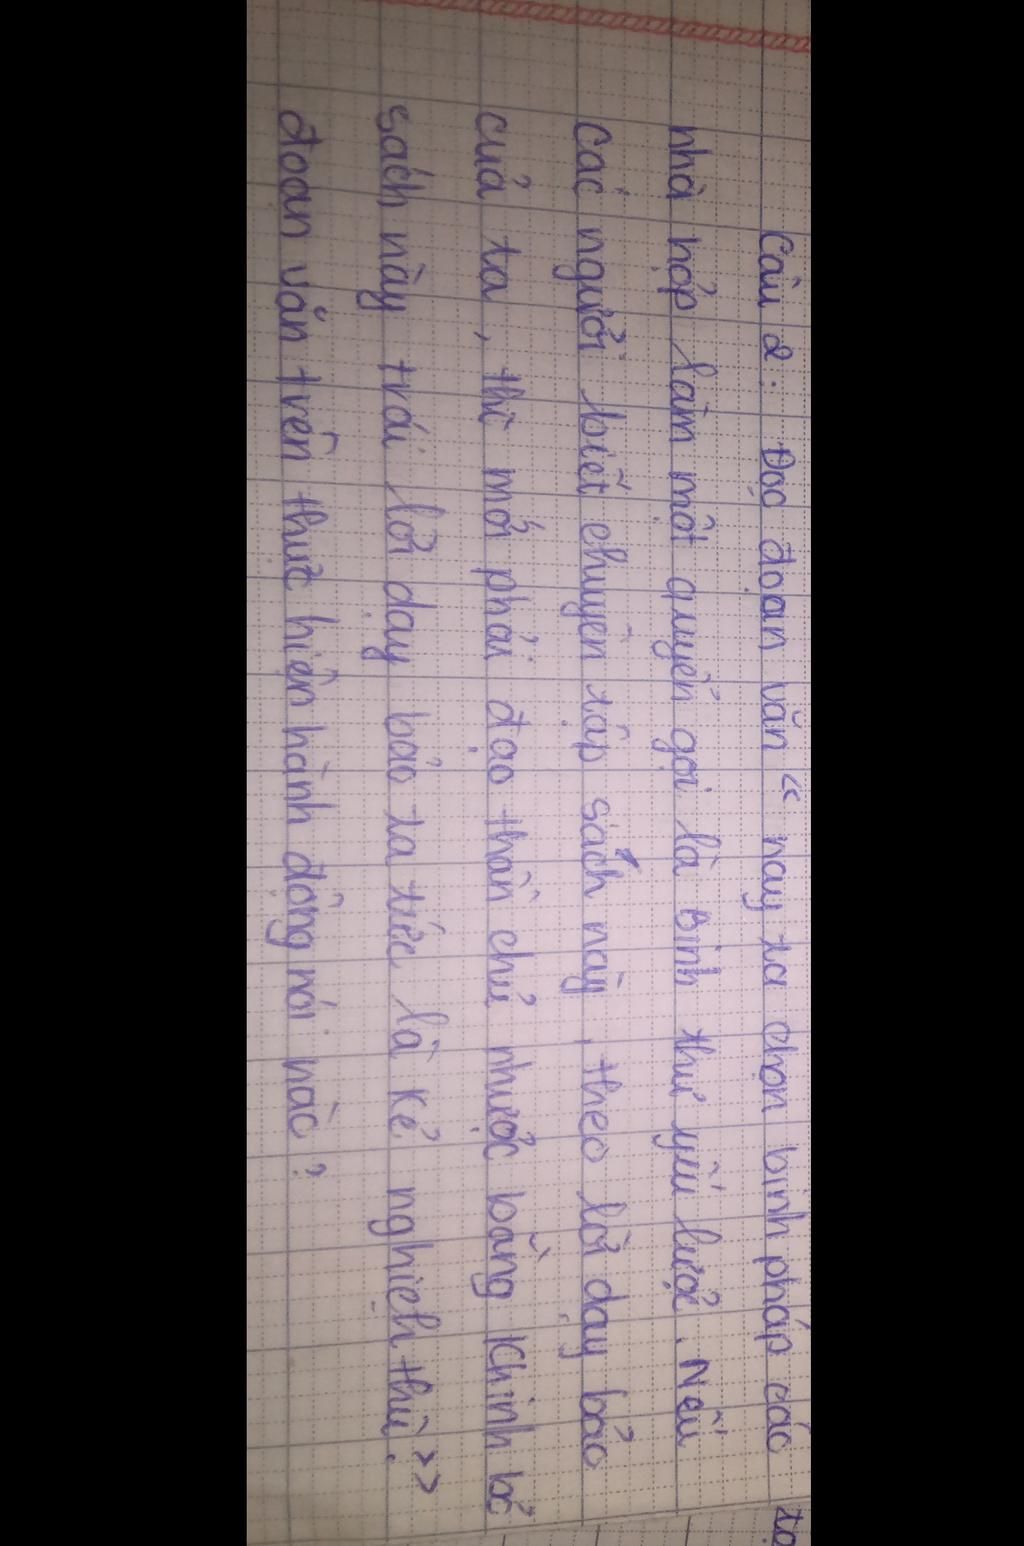 Câu 2: Đọc đoạn văn " nay ta chọn binh pháp các
nhà hợp làm một quyển gọi là Binh thư yếu lược. Nếu
các ngươi biết chuyên tập sách này, theo lời dạy bảo
của ta, thì mới phải đạo thần chủ nhược bằng khinh bỏ
sách này trái lời dạy bảo ta tức là kẻ nghịch thù. >>
đoạn văn trên thực hiện hành động nói nào ?